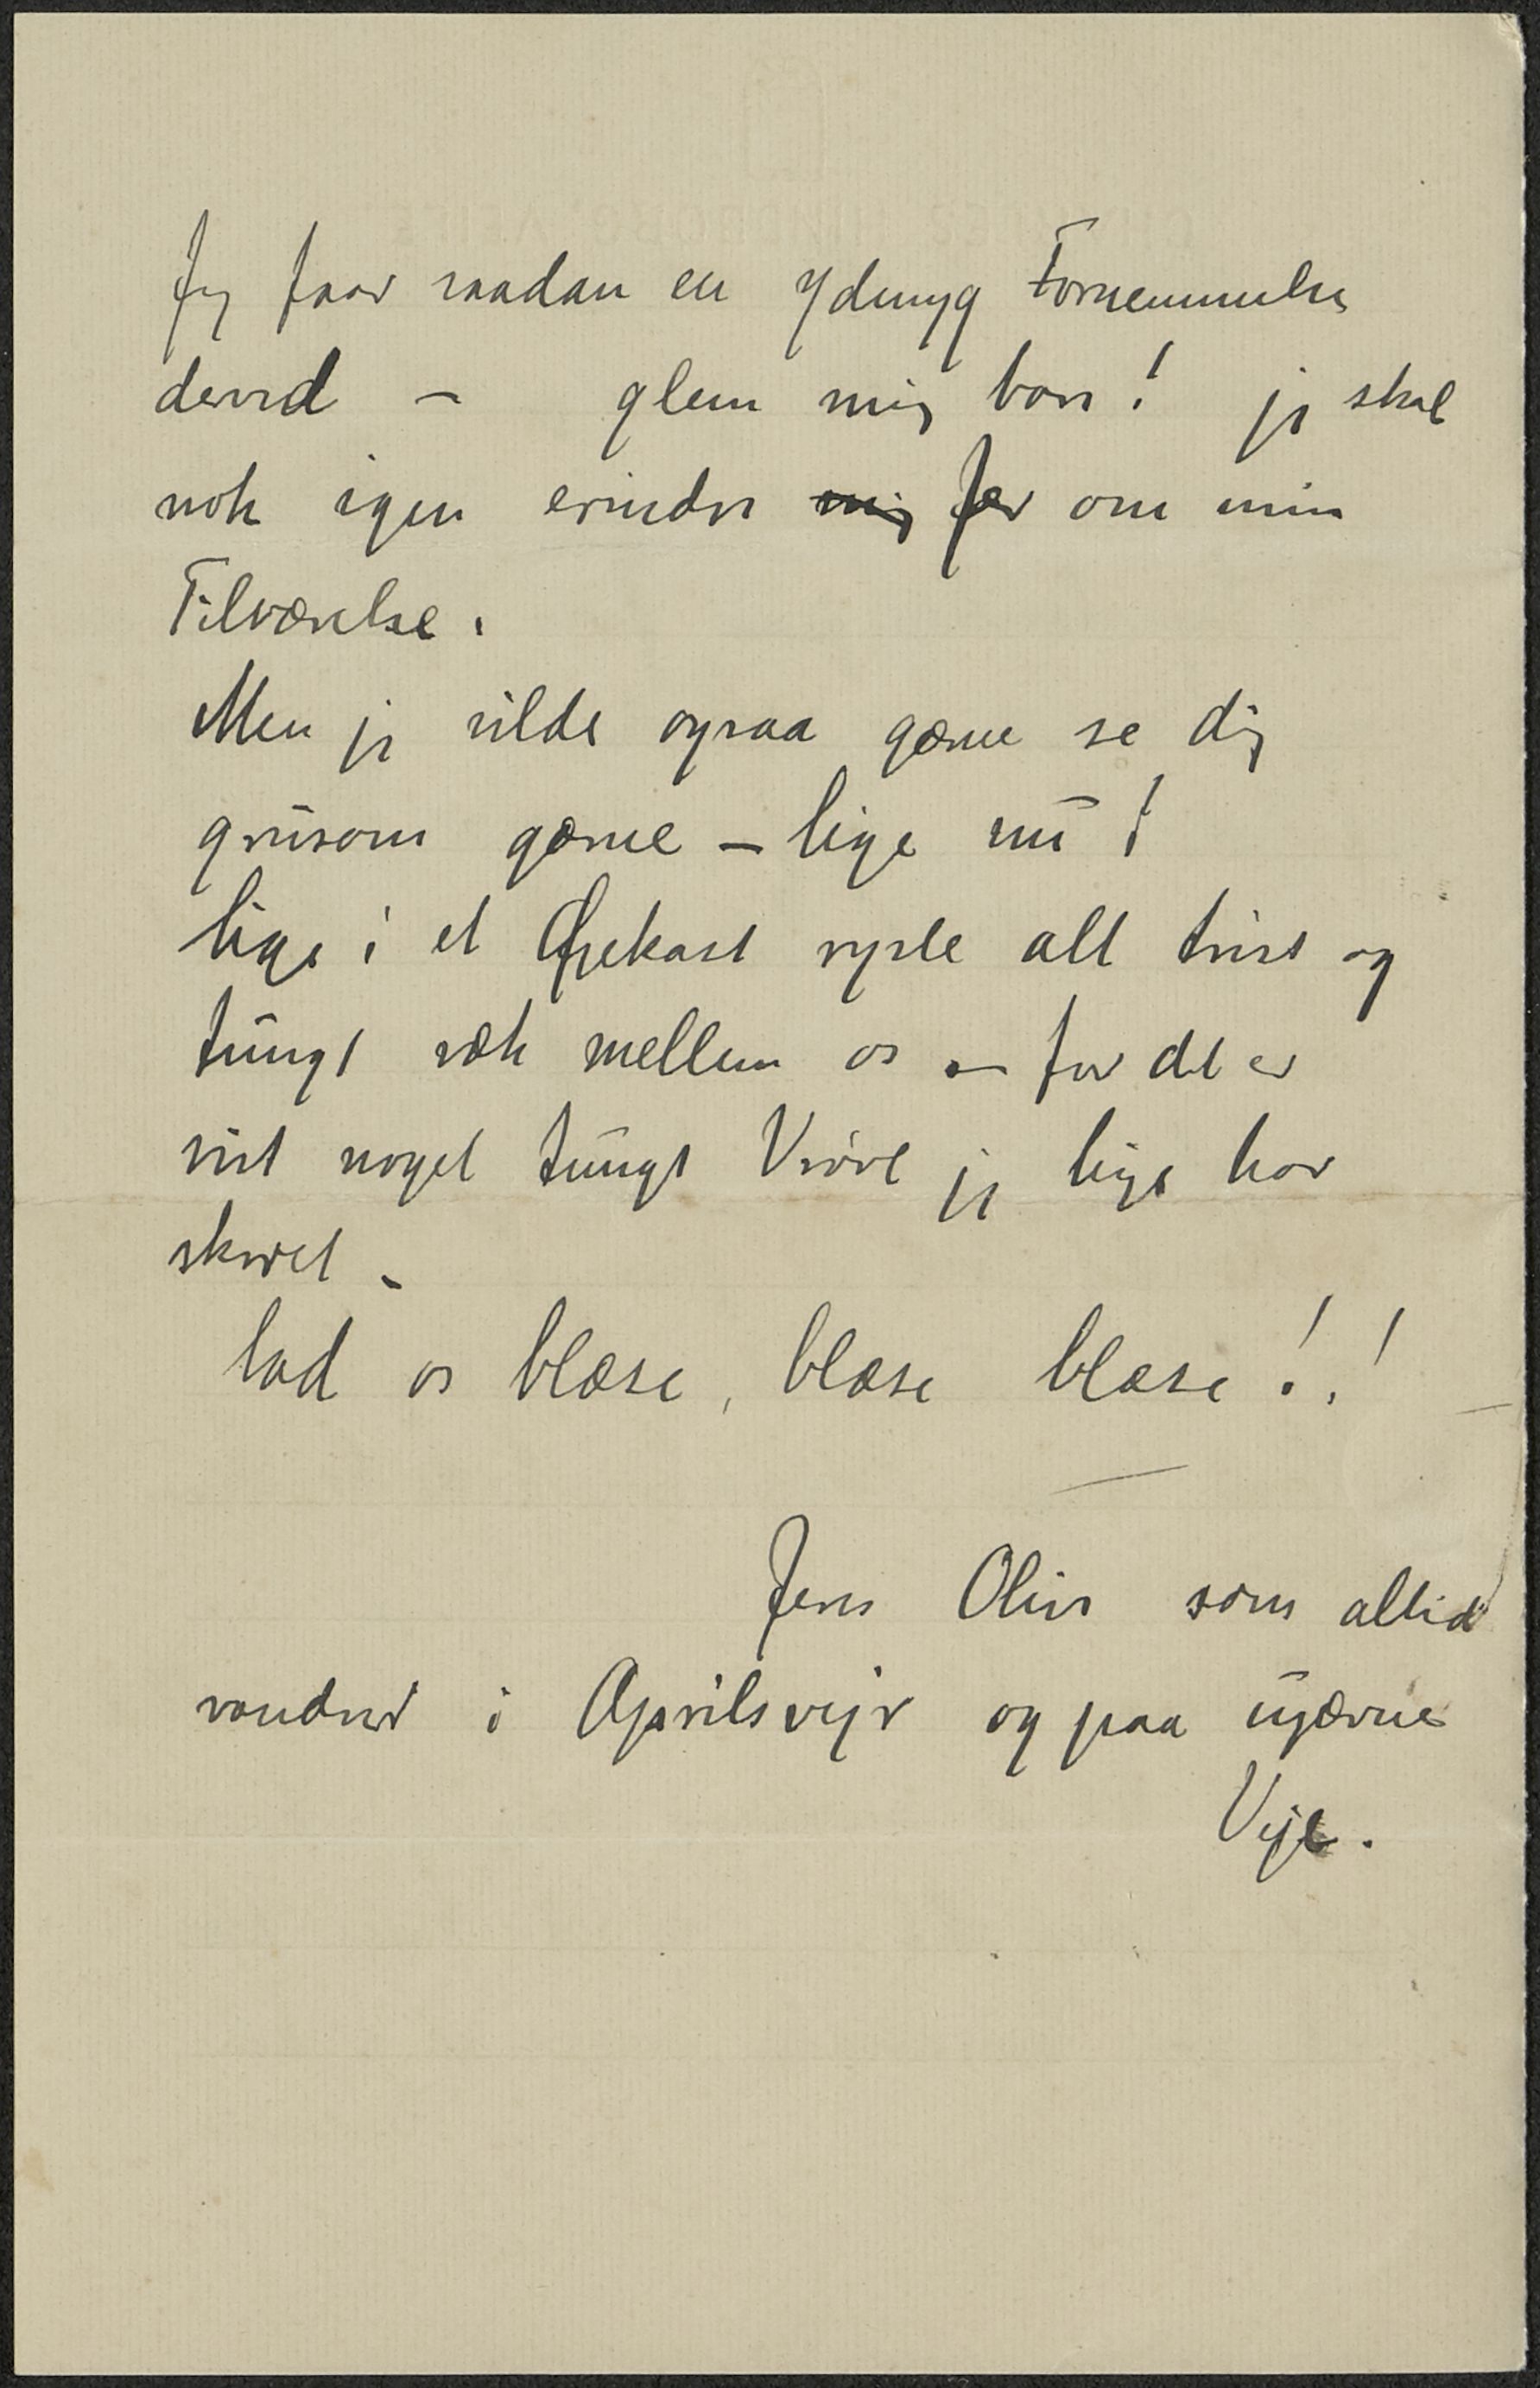 Jeg faar saadan en ydmyg Fornemmelse
derved – glem mig bare! jeg skal
nok igen erindre mig Jer om min
Tilværelse.
Men jeg vilde ogsaa gærne se dig
grusom gærne – lige nu!
lige i et Øjekast ryste alt trist og
tungt væk mellem os – for det er
vist noget tungt Vrøvl jeg lige har
skrevet –
lad os blæse, blæse blæse!!
Jens Oliver som altid
vandrer i Aprilsvejr og paa ujævne
Veje.